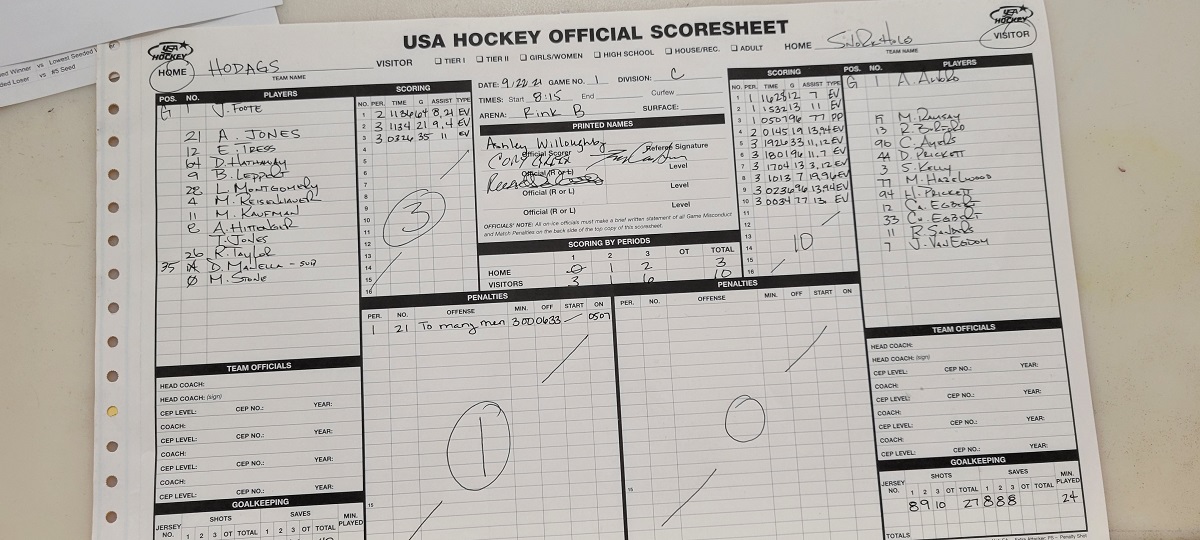 ed Winner vs Lowest Seeded
ded Loser vs #5 Seed
USA HOCKEY OFFICIAL SCORESHEET
USA HOCKEY
HOME HODAGS VISITOR
TEAM NAME
☐ TIER I ☐ TIER II ☐ GIRLS/WOMEN ☐ HIGH SCHOOL ☐ HOUSE/REC. ☐ ADULT
HOME VISITOR
TEAM NAME
USA HOCKEY
POS. NO. PLAYERS
G 1 J. FOOTE
21 A. JONES
12 E. TRESS
64 D. HATHAWAY
9 B. LEPPERT
28 L. MONTGOMERY
4 M. KEISENHAUER
11 M. KAUFMAN
8 A. HITTENGER
T. JONES
26 K. TAYLOR
35 D. MANELLA - SUB
Ø M. STONE
SCORING
NO. PER. TIME G ASSIST TYPE
1 2 1134 64 8, 21 EV
2 3 1134 21 9, 4 EV
3 3 0326 35 11 EV
4
5
6
7
8
9
10
11
12
13
14
15
16
3
DATE: 9/22/21 GAME NO. 1 DIVISION: C
TIMES: Start 8:15 End Curfew
ARENA: Rink B SURFACE:
PRINTED NAMES
Ashley Willoughby
Official Scorer
Referee Signature
Official (R or L) Level
Official (R or L) Level
Official (R or L) Level
OFFICIALS' NOTE: All on-ice officials must make a brief written statement of all Game Misconduct
and Match Penalties on the back side of the top copy of this scoresheet.
SCORING BY PERIODS
1 2 3 OT TOTAL
HOME 0 1 2 3
VISITORS 3 1 6 10
SCORING
NO. PER. TIME G ASSIST TYPE
1 1 1628 12 7 EV
2 1 1532 13 11 EV
3 1 0507 96 77 PP
4 2 0145 19 13,94 EV
5 3 1926 33 11,12 EV
6 3 1801 96 11,7 EV
7 3 1704 13 3,12 EV
8 3 1013 7 19,96 EV
9 3 0236 96 13,94 EV
10 3 0034 77 13 EV
11
12
13
14
15
16
10
POS. NO. PLAYERS
G 1
M. Ramsay
13
96 C. Ayers
44 D. PRICKETT
3 S. KELLY
77 M. HAZELWOOD
94 H. PRICKETT
12 Ca. EGBERT
33 Co. EGBERT
11
7 J. VAN EGDOM
PENALTIES
PER. NO. OFFENSE MIN. OFF START ON
1 21 To many men 300 0633 — 0507
1
15
PENALTIES
PER. NO. OFFENSE MIN. OFF START ON
0
15
TEAM OFFICIALS
HEAD COACH:
HEAD COACH: (sign)
CEP LEVEL: CEP NO.: YEAR:
COACH:
CEP LEVEL: CEP NO.: YEAR:
COACH:
CEP LEVEL: CEP NO.: YEAR:
COACH:
CEP LEVEL: CEP NO.: YEAR:
GOALKEEPING
JERSEY NO. SHOTS SAVES MIN. PLAYED
1 2 3 OT TOTAL 1 2 3 OT TOTAL
TEAM OFFICIALS
HEAD COACH:
HEAD COACH: (sign)
CEP LEVEL: CEP NO.: YEAR:
COACH:
CEP LEVEL: CEP NO.: YEAR:
COACH:
CEP LEVEL: CEP NO.: YEAR:
COACH:
CEP LEVEL: CEP NO.: YEAR:
GOALKEEPING
JERSEY NO. SHOTS SAVES MIN. PLAYED
1 2 3 OT TOTAL 1 2 3 OT TOTAL
8 9 10 27 8 8 8 24
TOTALS